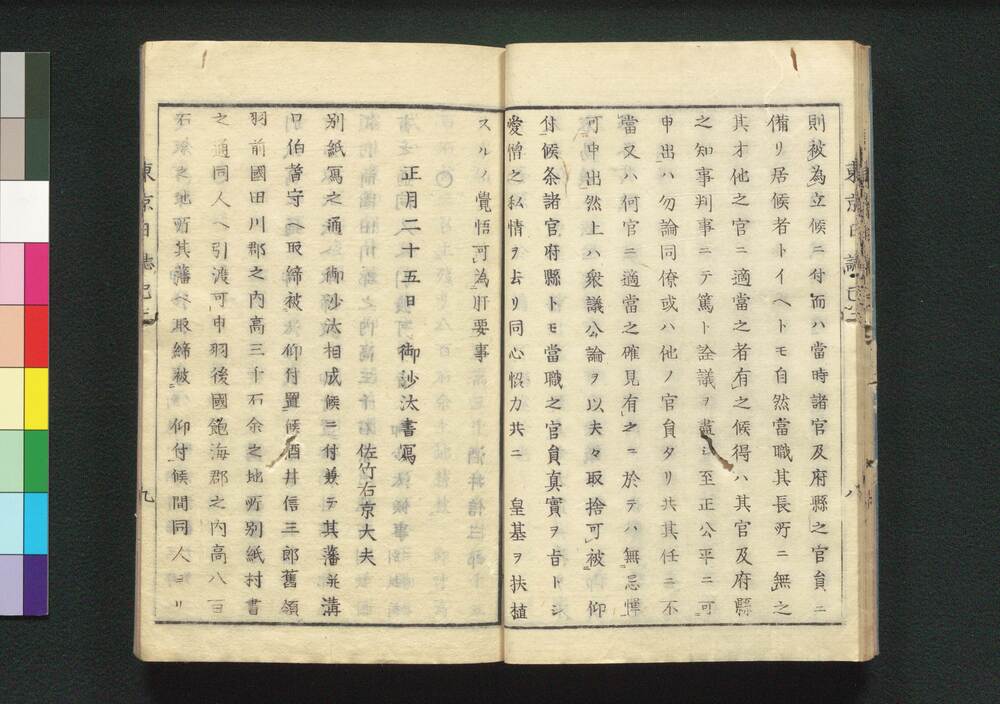 則被為立候ニ付而ハ當時諸官及府縣之官員ニ
備リ居候者トイヘトモ自然當職其長所ニ無之
其才他之官ニ適當之者有之候得ハ其官及府縣
之知事判事ニテ篤ト詮議ヲ盡シ至正公平ニ可
申出ハ勿論同僚或ハ他ノ官員タリ共其任ニ不
當又ハ何官ニ適當之確見有之ニ於テハ無忌憚
可申出然上ハ衆議公論ヲ以夫々取捨可被 仰
付候条諸官府縣トモ當職之官員真實ヲ旨トシ
愛憎之私情ヲ去リ同心協力共ニ 皇基ヲ扶植
スルノ覺悟可為肝要事
正月二十五日御沙汰書寫
佐竹右京大夫
別紙寫之通御沙汰相成候ニ付兼テ其藩并溝
口伯耆守ヘ取締被 仰付置候酒井信三郎舊領
羽前國田川郡之内高三千石余之地所別紙村書
之通同人ヘ引渡可申羽後國飽海郡之内高八百
石余之地所其藩ヘ取締被 仰付候間同人ヨリ
東京日誌 八
東京日誌 九